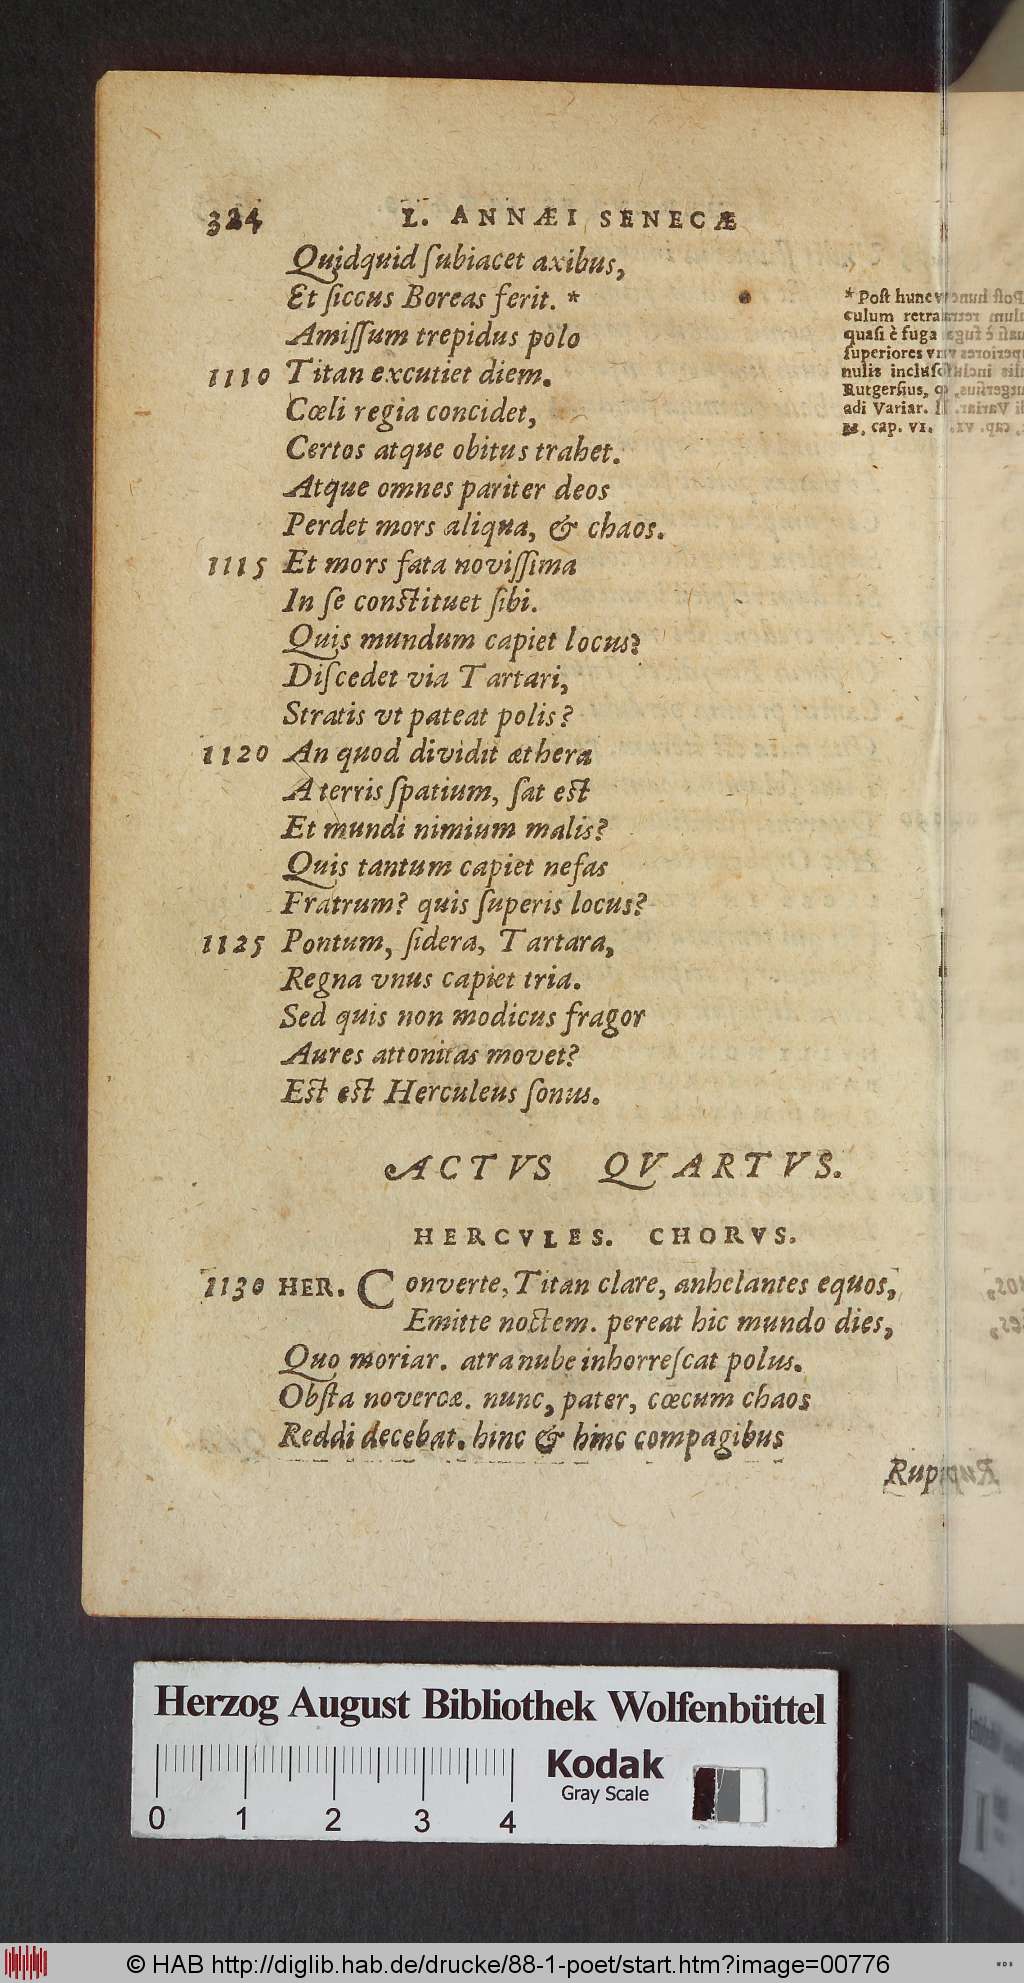 324 L. ANNÆI SENECÆ
Quidquid ſubiacet axibus,
Et ſiccus Boreas ferit. *
Amiſſum trepidus polo
1110 Titan excutiet diem.
Cœli regia concidet,
Certos atque obitus trahet.
Atque omnes pariter deos
Perdet mors aliqua, & chaos.
1115 Et mors fata noviſſima
In ſe conſtituet ſibi.
Quis mundum capiet locus?
Diſcedet via Tartari,
Stratis vt pateat polis?
1120 An quod dividit æthera
A terris ſpatium, ſat eſt
Et mundi nimium malis?
Quis tantum capiet nefas
Fratrum? quis ſuperis locus?
1125 Pontum, ſidera, Tartara,
Regna vnus capiet tria.
Sed quis non modicus fragor
Aures attonitas movet?
Eſt eſt Herculeus ſonus.
* Poſt hunc
culum retra
quaſi è fuga
ſuperiores
nulis incluſ
Rutgerſius,
adi Variar.
cap. VI.
ACTVS QVARTVS.
HERCVLES. CHORVS.
1130 HER. Converte, Titan clare, anhelantes equos,
Emitte noctem. pereat hic mundo dies,
Quo moriar. atra nube inhorreſcat polus.
Obſta novercæ. nunc, pater, cœcum chaos
Reddi decebat. hinc & hinc compagibus
Rup
Herzog August Bibliothek Wolfenbüttel
Kodak
Gray Scale
0 1 2 3 4
© HAB http://diglib.hab.de/drucke/88-1-poet/start.htm?image=00776